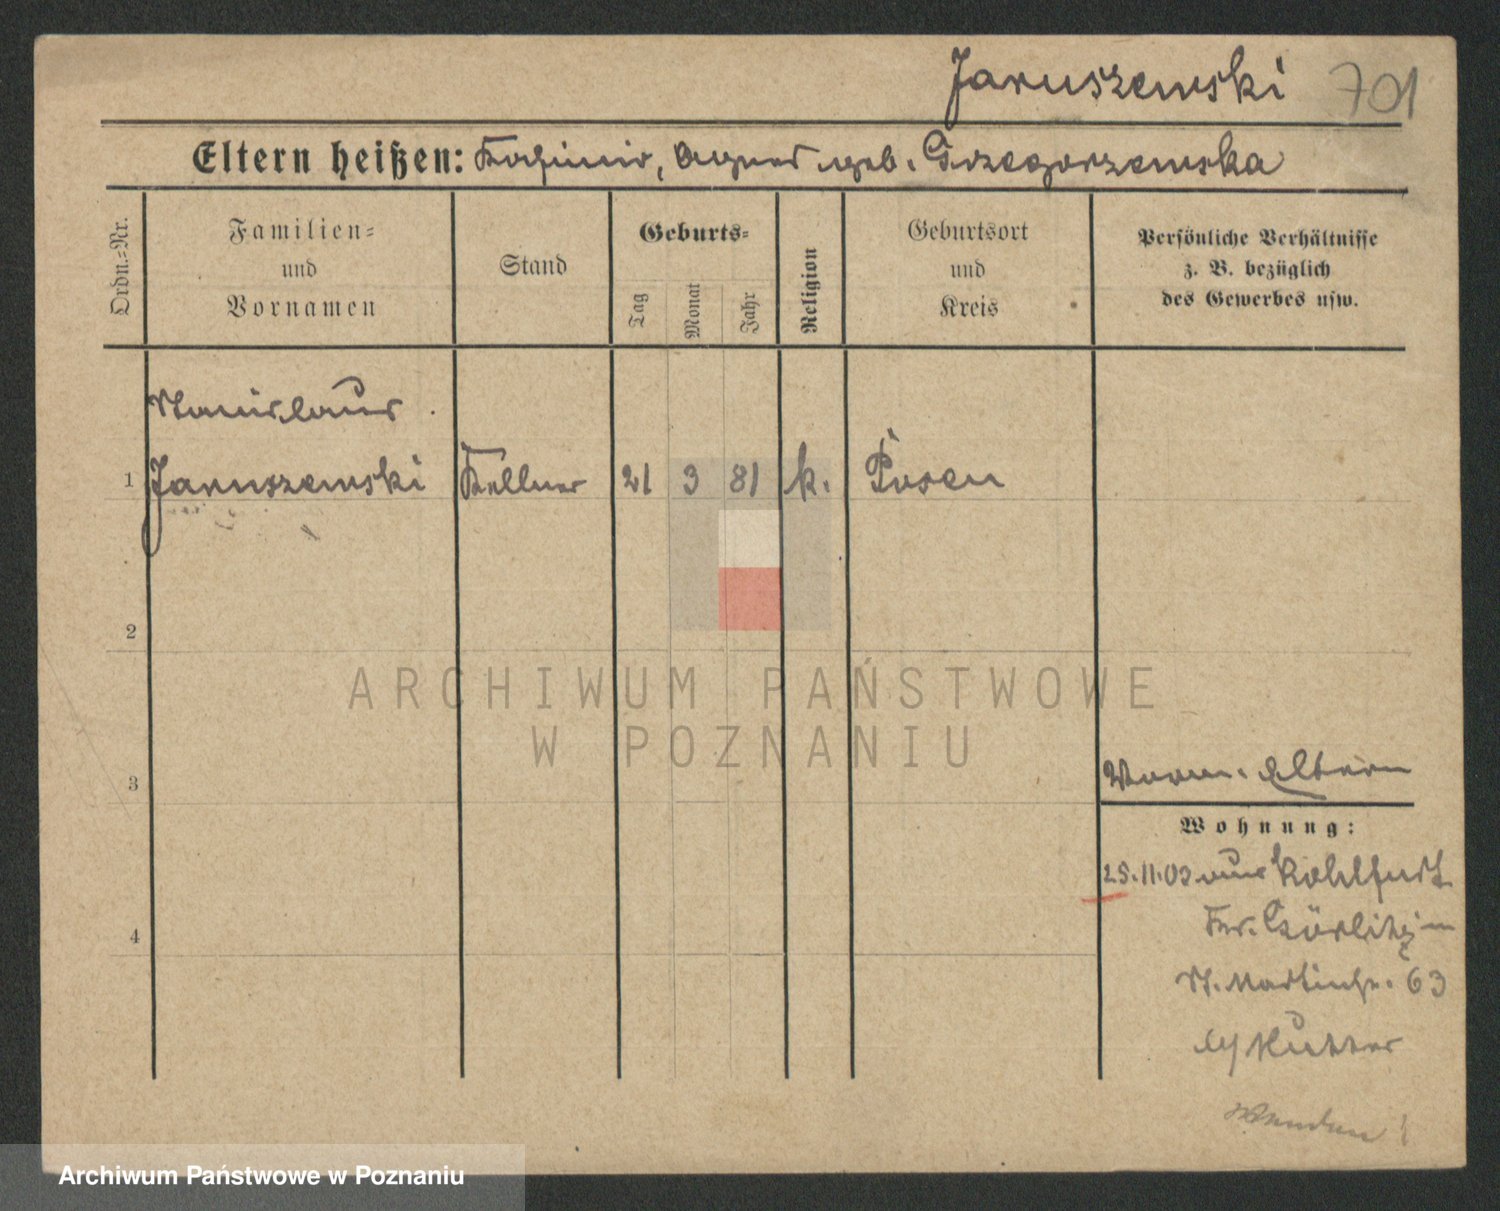 Jaruszewski 701
Eltern heißen: Kasimir, Agnes geb. Grzegorzewska
Ordn.-Nr.
Familien-
und
Vornamen
Stand
Geburts-
Tag
Monat
Jahr
Religion
Geburtsort
und
Kreis
Persönliche Verhältnisse
z. B. bezüglich
des Gewerbes usw.
Stanislaus
1 Jaruszewski Kellner 21 3 81 k. Posen
2
ARCHIWUM PAŃSTWOWE
W POZNANIU
3
Eltern
Wohnung:
25.11.03 aus Kohlfurt
Kr. Görlitz
St. Martinstr. 63
b/ Mutter
4
Archiwum Państwowe w Poznaniu